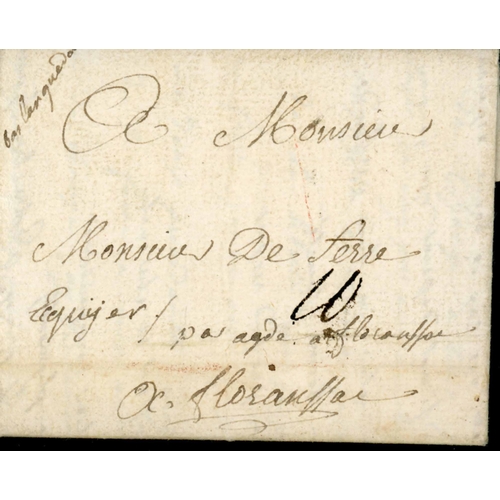 bas languedoc
A Monsieur
Monsieur De Serre
Equiyer / 10
par agde a floranssac
A floranssac